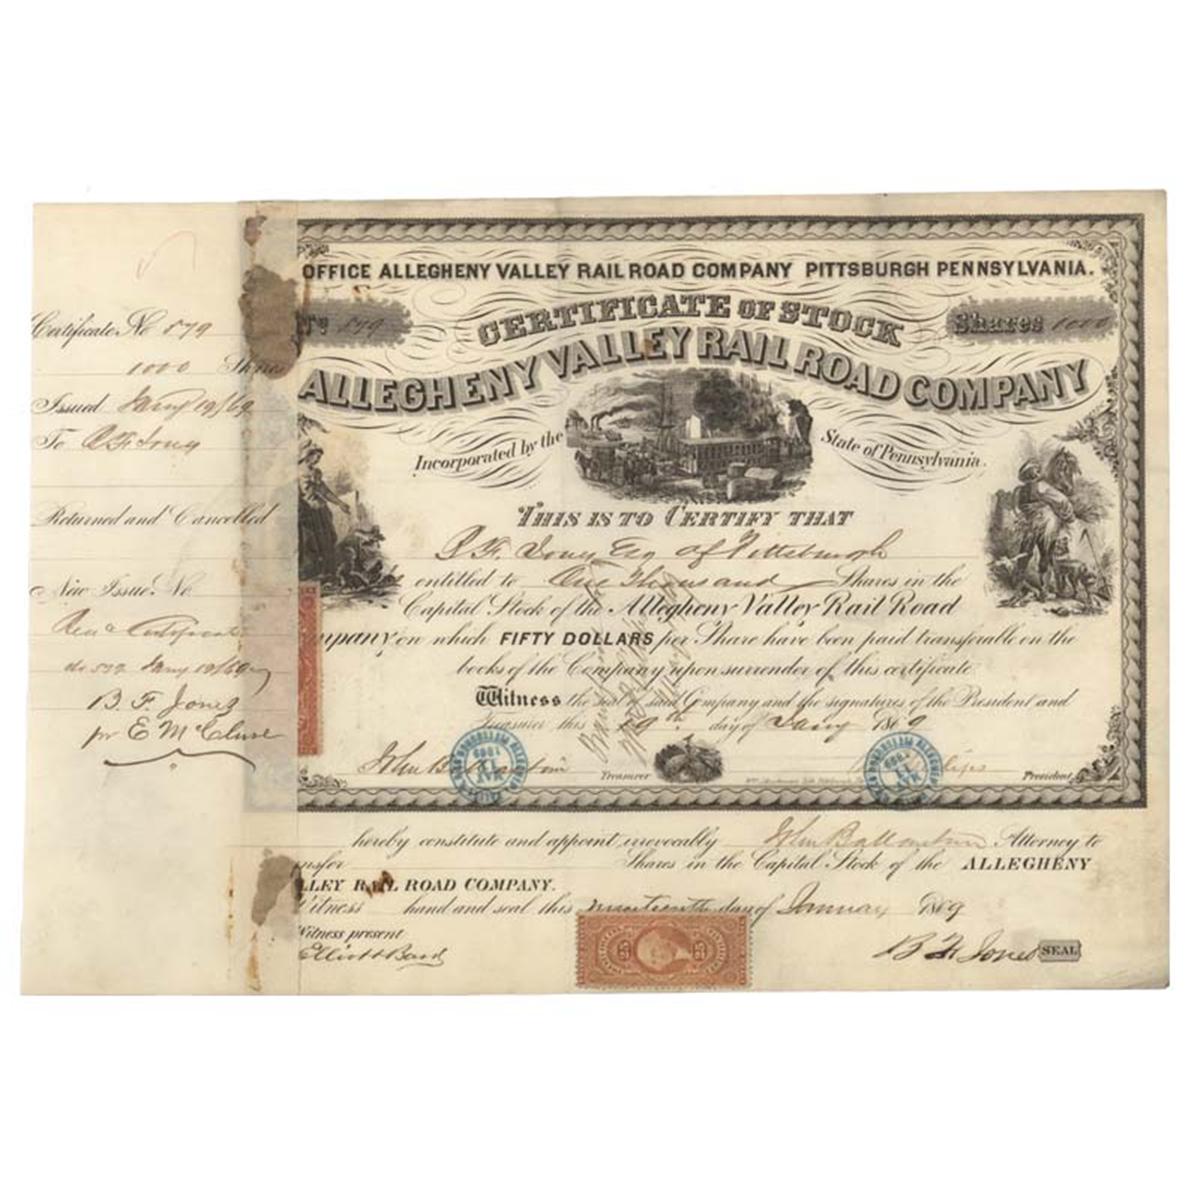 Certificate No 579
1000 Shares
Issued Jany 19/69
To B F Jones
Returned and Cancelled
New Issue. No
Certificate
Jany 19/69
B. F. Jones
pr E McClure
OFFICE ALLEGHENY VALLEY RAIL ROAD COMPANY PITTSBURGH PENNSYLVANIA.
No 579
CERTIFICATE OF STOCK
Shares 1000
ALLEGHENY VALLEY RAIL ROAD COMPANY
Incorporated by the State of Pennsylvania.
THIS IS TO CERTIFY THAT
B. F. Jones Esq of Pittsburgh
entitled to One Thousand Shares in the
Capital Stock of the Allegheny Valley Rail Road
ompany on which FIFTY DOLLARS per Share have been paid transferable on the
books of the Company upon surrender of this certificate
Witness the seal of said Company and the signatures of the President and
Treasurer this 19th day of Jany 1869
John Ballantine Treasurer
President
hereby constitute and appoint irrevocably John Ballantine Attorney to
nsfer Shares in the Capital Stock of the ALLEGHENY
LLEY RAIL ROAD COMPANY.
Witness hand and seal this nineteenth day of January 1869
Witness present
B F Jones SEAL